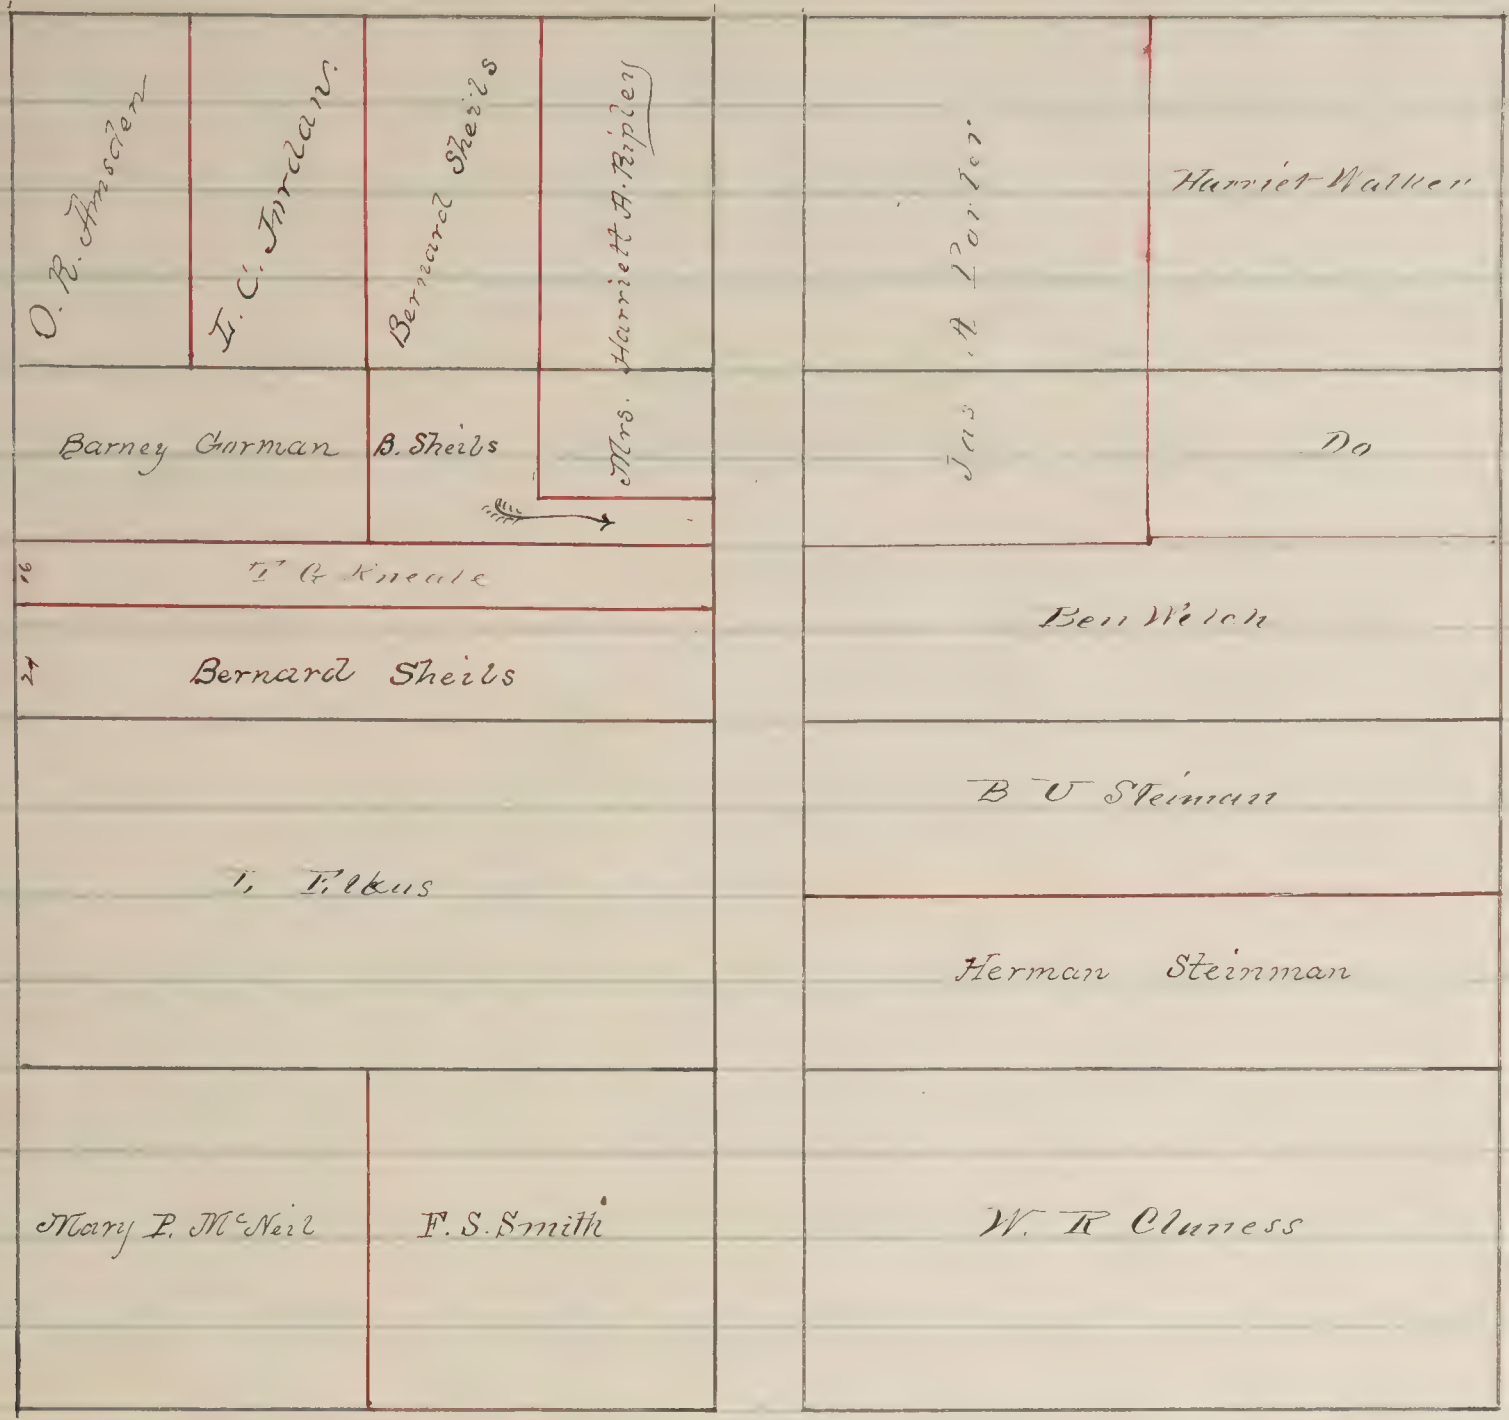 O. R. Amsden
L. C. Jordan.
Bernard Sheils
Mrs. Harriett A. Ripley
Barney Gorman
B. Sheils
16
T G Kneale
24
Bernard Sheils
L, Elkus
Mary P. McNeil
F. S. Smith
Jas A Porter
Harriet Walker
Do
Ben Welch
B U Steiman
Herman Steinman
W. R Cluness